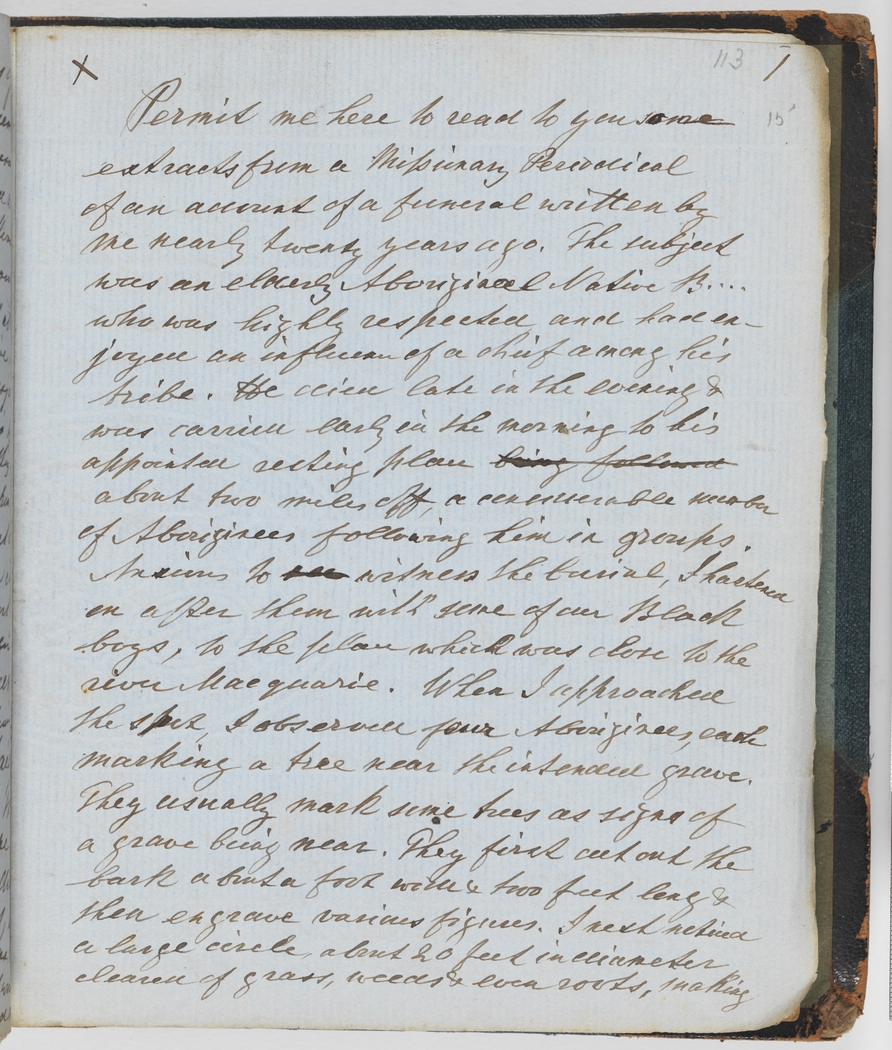 X
113
15
Permit me here to read to you some
extracts from a Missionary Periodical
of an account of a funeral written by
me nearly twenty years ago. The subject
was an elderly Aboriginal Native B....
who was highly respected and had en-
joyed an influence of a chief among his
tribe. He died late in the evening &
was carried early in the morning to his
appointed resting place being followed
about two miles off, a considerable number
of Aborigines following him in groups.
Anxious to see witness the burial, I hastened
on after them with some of our Black
boys, to the place which was close to the
river Macquarie. When I approached
the spot, I observed four Aborigines, each
marking a tree near the intended grave.
They usually mark some trees as signs of
a grave being near. They first cut out the
bark about a foot wide & two feet long &
then engrave various figures. I next noticed
a large circle, about 20 feet in diameter
cleared of grass, weeds & even roots, making